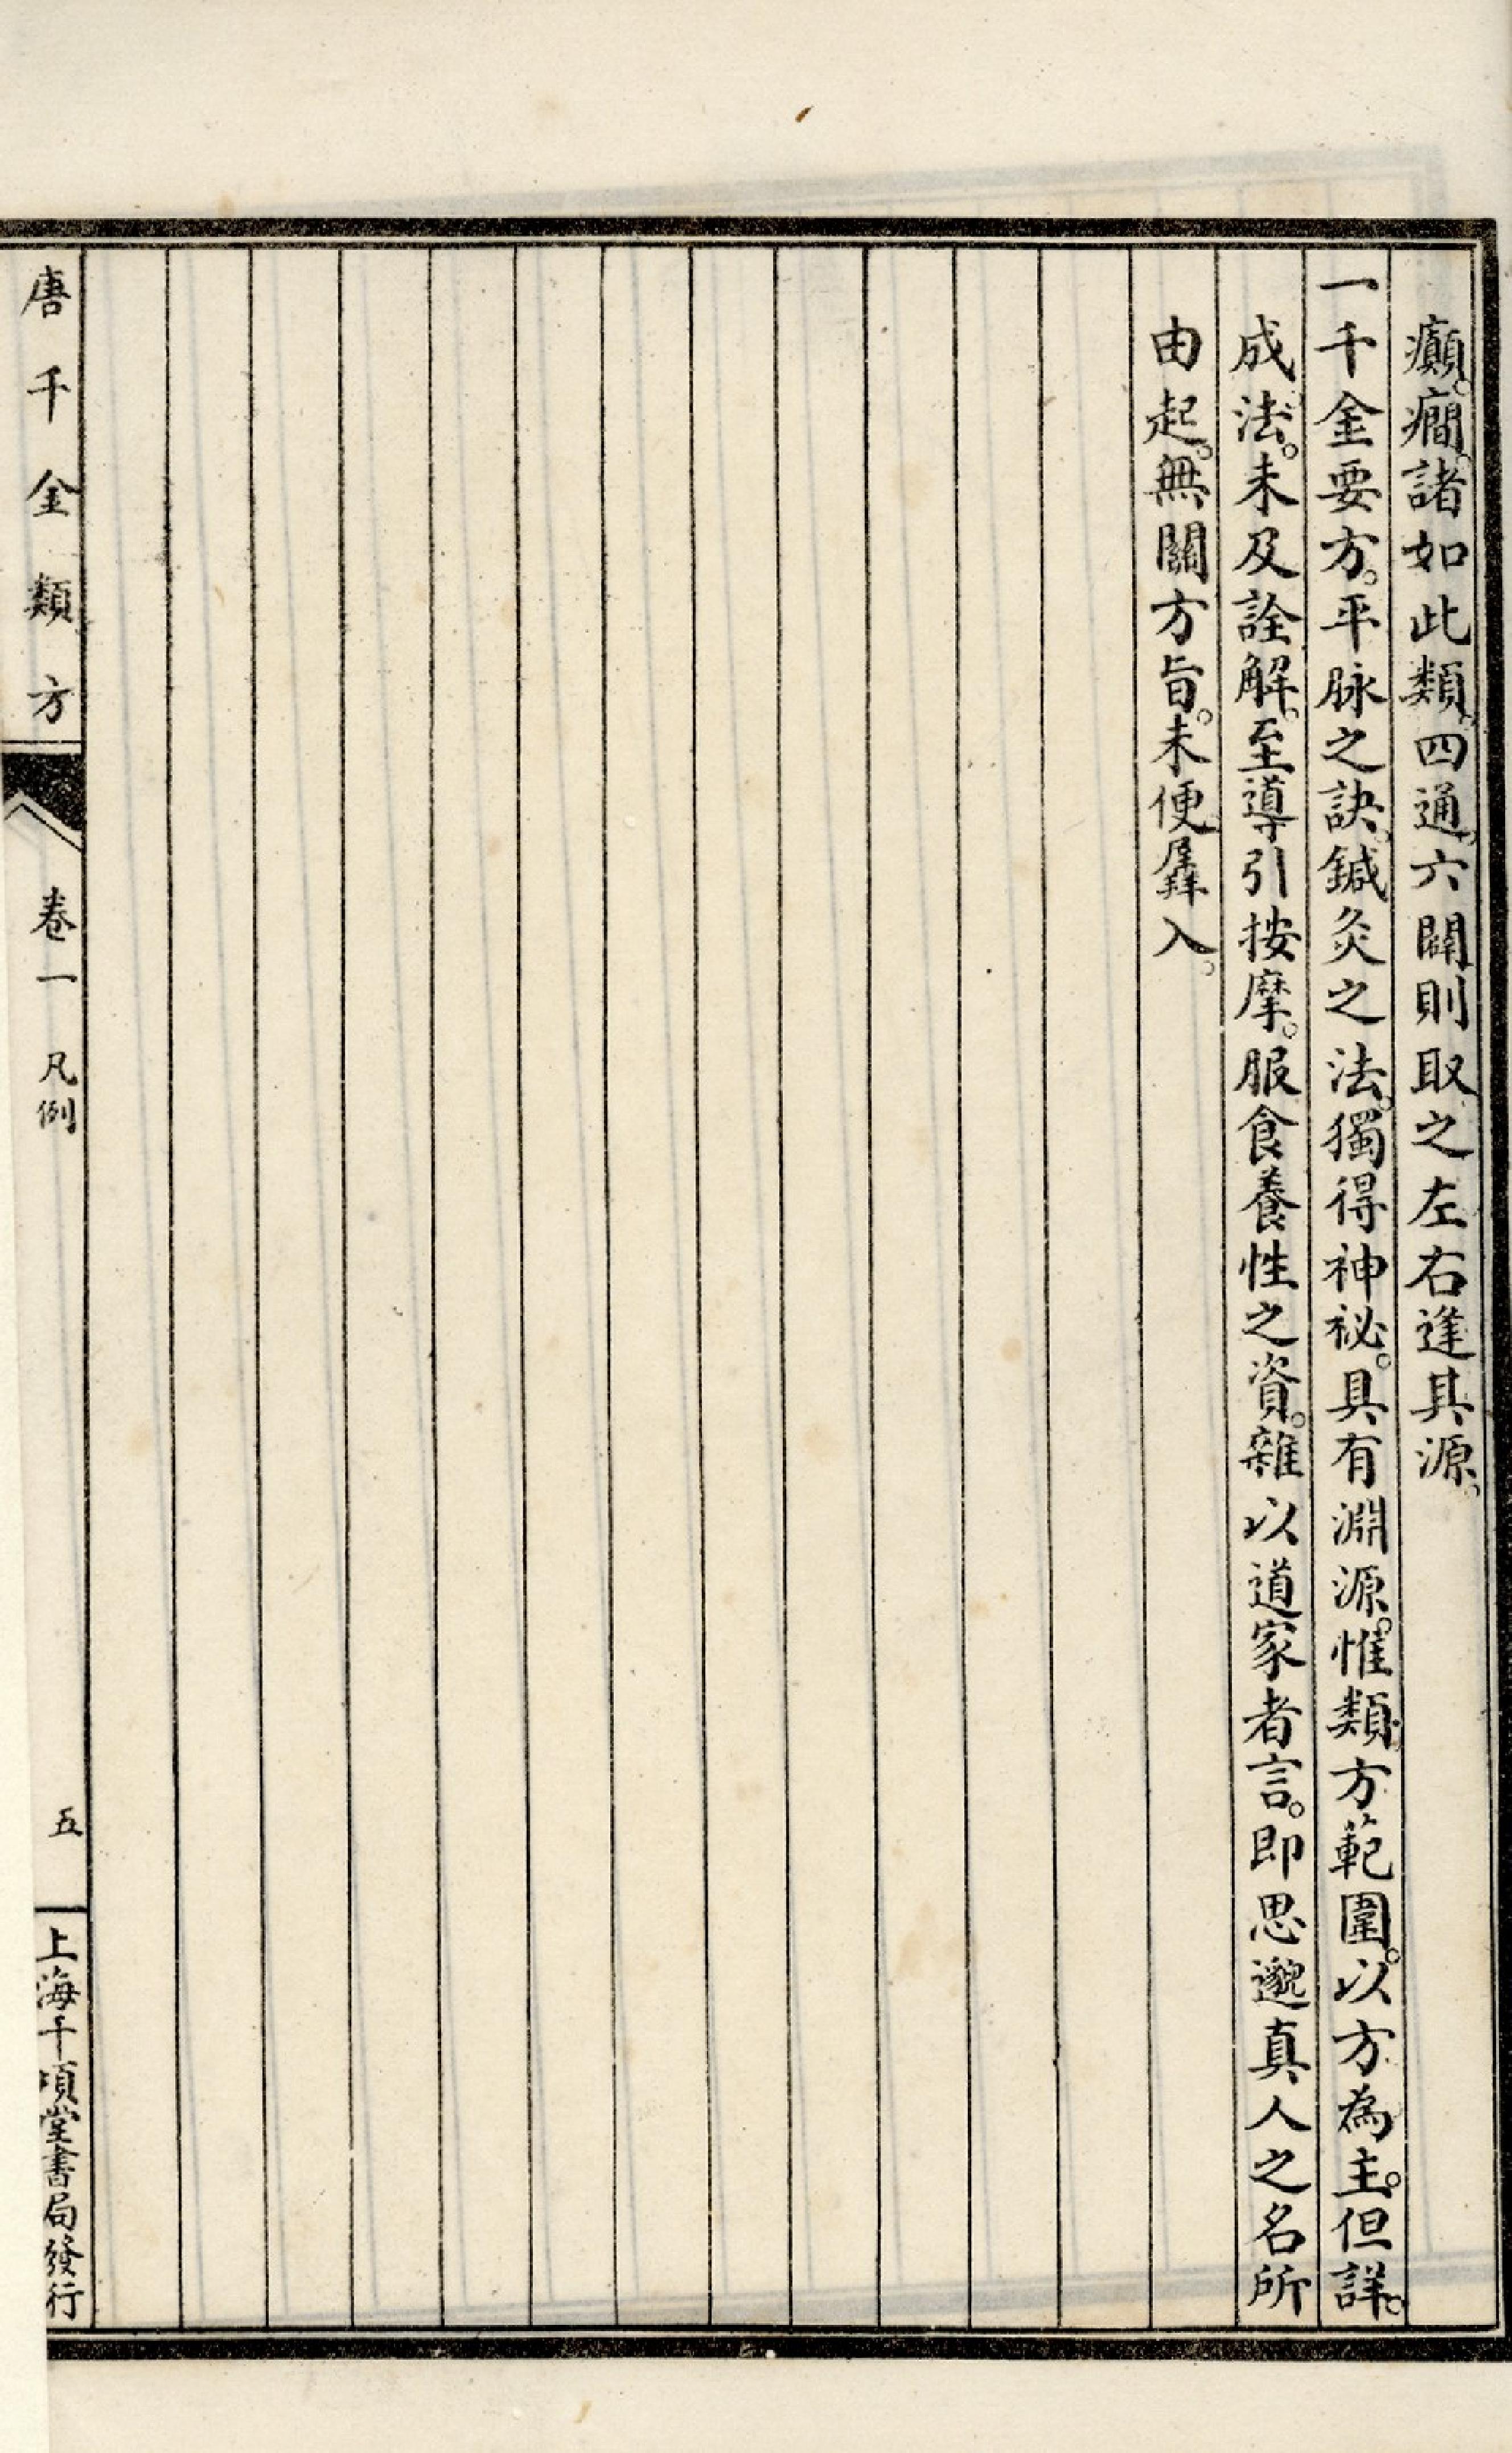 癲。癇。諸如此類。四通。六闢則取之左右逢其源。
一千金要方。平脉之訣。鍼灸之法。獨得神祕。具有淵源。惟類方範圍。以方為主。但詳。
成法。未及詮解。至導引按摩。服食養性之資。雜以道家者言。即思邈真人之名所
由起。無關方旨。未便羼入。
唐千金類方
卷一 凡例
五
上海千頃堂書局發行